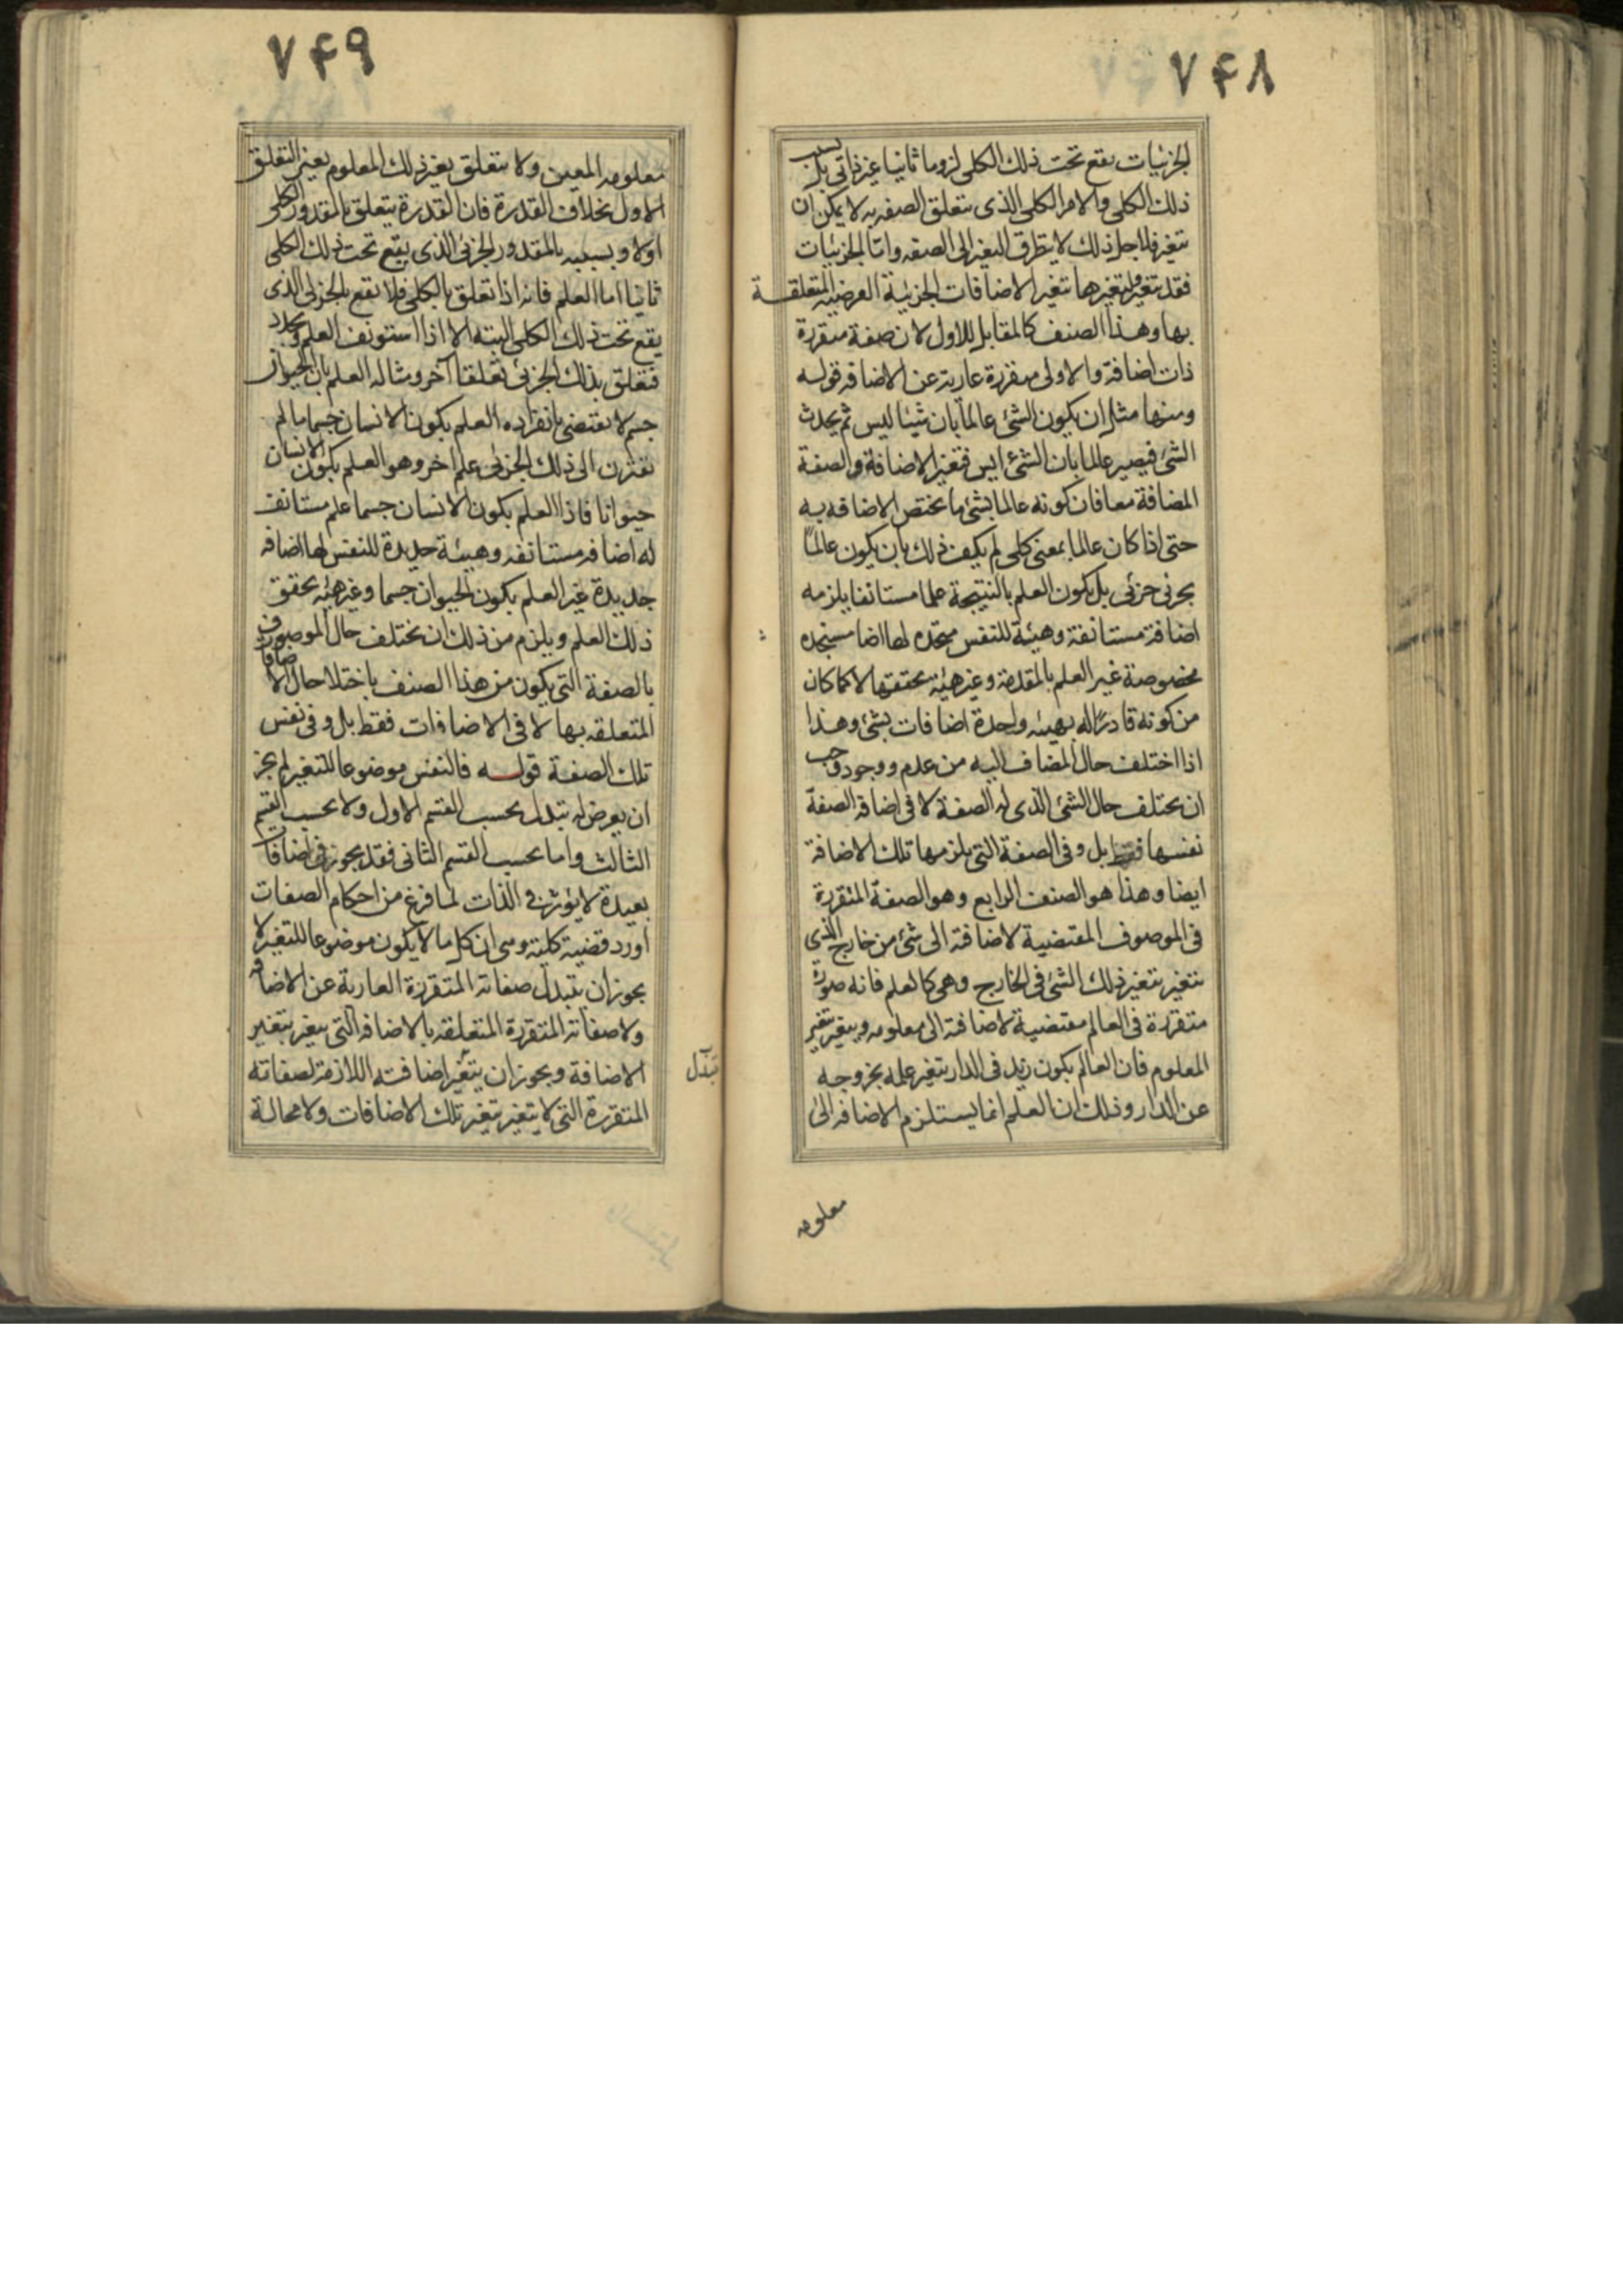 ۷۴۸
الجزئیات یقع تحت ذلك الکلی لزوما ثانیا غیر ذاتی بل بسبب
ذلك الکلی والامر الکلی الذی یتعلق الصفه به لا یمکن ان
یتغیر فلاجل ذلك لا یتطرق التغیر الی الصفه واما الجزئیات
فقد یتغیر وبتغیرها یتغیر الاضافات الجزئیة العرضیه المتعلقة
بها وهذا الصنف کالمقابل للاول لان صفة متقررة
ذات اضافة والاولی متقررة عاریة عن الاضافه قوله
ومنها مثل ان یکون الشئ عالما بان شیئا لیس ثم یحدث
الشئ فیصیر عالما بان الشئ ایس فتغیر الاضافة والصفة
المضافة معا فان کونه عالما بشئ ما یختص الاضافه به
حتی اذا کان عالما بمعنی کلی لم یکف ذلك بان یکون عالمًا
بجزئی جزئی بل یکون العلم بالنتیجة علما مستانفا یلزمه
اضافة مستانفة وهیئة للنفس متجدده لها اضافة متجدده
مخصوصة غیر العلم بالمقدمة وغیر هیئة تحققها لا کما کان
من کونه قادرًا له بهیئه واحدة اضافات بشئ وهذا
اذا اختلف حال المضاف الیه من عدم ووجود وجب
ان یختلف حال الشئ الذی له الصفة لا فی اضافه الصفة
نفسها فقط بل وفی الصفة التی یلزمها تلك الاضافة
ایضا وهذا هو الصنف الرابع وهو الصفة المتقررة
فی الموصوف المقتضیة لاضافته الی شئ من خارج الذی
یتغیر بتغیر ذلك الشئ فی الخارج وهی کالعلم فانه صورة
متقررة فی العالم مقتضیة لاضافته الی معلومه ویتغیر بتغیر
المعلوم فان العالم بکون زید فی الدار یتغیر علمه بخروجه
عن الدار وذلك ان العلم انما یستلزم الاضافه الی
معلومه
۷۴۹
معلومه المعین ولا یتعلق بغیر ذلك المعلوم بعین التعلق
الاول بخلاف القدرة فان القدرة یتعلق بالمقدور الکلی
اولا وبسببه بالمقدور الجزئی الذی یقع تحت ذلك الکلی
ثانیا اما العلم فانه اذا تعلق بالکلی فلا یقع بالجزئی الذی
یقع تحت ذلك الکلی البتة الا اذا استونف العلم وتجدد
فتعلق بذلك الجزئی تعلقا آخر ومثاله العلم بان الحیوان
جسم لا یقتضی بانفراده العلم بکون الانسان جسما ما لم
یقترن الی ذلك الجزئی علم اخر وهو العلم بکون الانسان
حیوانا فاذا العلم بکون الانسان جسما علم مستانف
له اضافه مستانفه وهیئة جدیدة للنفس لها اضافه
جدیدة غیر العلم بکون الحیوان جسما وغیر هیئه تحقق
ذلك العلم ویلزم من ذلك ان یختلف حال الموصوف
بالصفة التی یکون من هذا الصنف باختلاحال الاضافات
المتعلقه بها لا فی الاضافات فقط بل وفی نفس
تلك الصفة قوله فالنفس موضوعا للتغیر لم یجز
ان یعرض له تبدل بحسب القسم الاول ولا بحسب القسم
الثالث واما بحسب القسم الثانی فقد یجوز فی اضافات
بعیدة لا یؤثر فی الذات لما فرغ من احکام الصفات
اورد قضیة کلیة وهی ان کل ما لا یکون موضوعا للتغیر لا
یجوز ان یتبدل صفاته المتقررة العاریة عن الاضافه
ولا صفاته المتقررة المتعلقه بالاضافه التی یتغیر بتغیر
الاضافة ویجوز ان یتغیر اضافته اللازمة لصفاته
المتقررة التی لا یتغیر بتغیر تلك الاضافات ولا محالة
تبدل